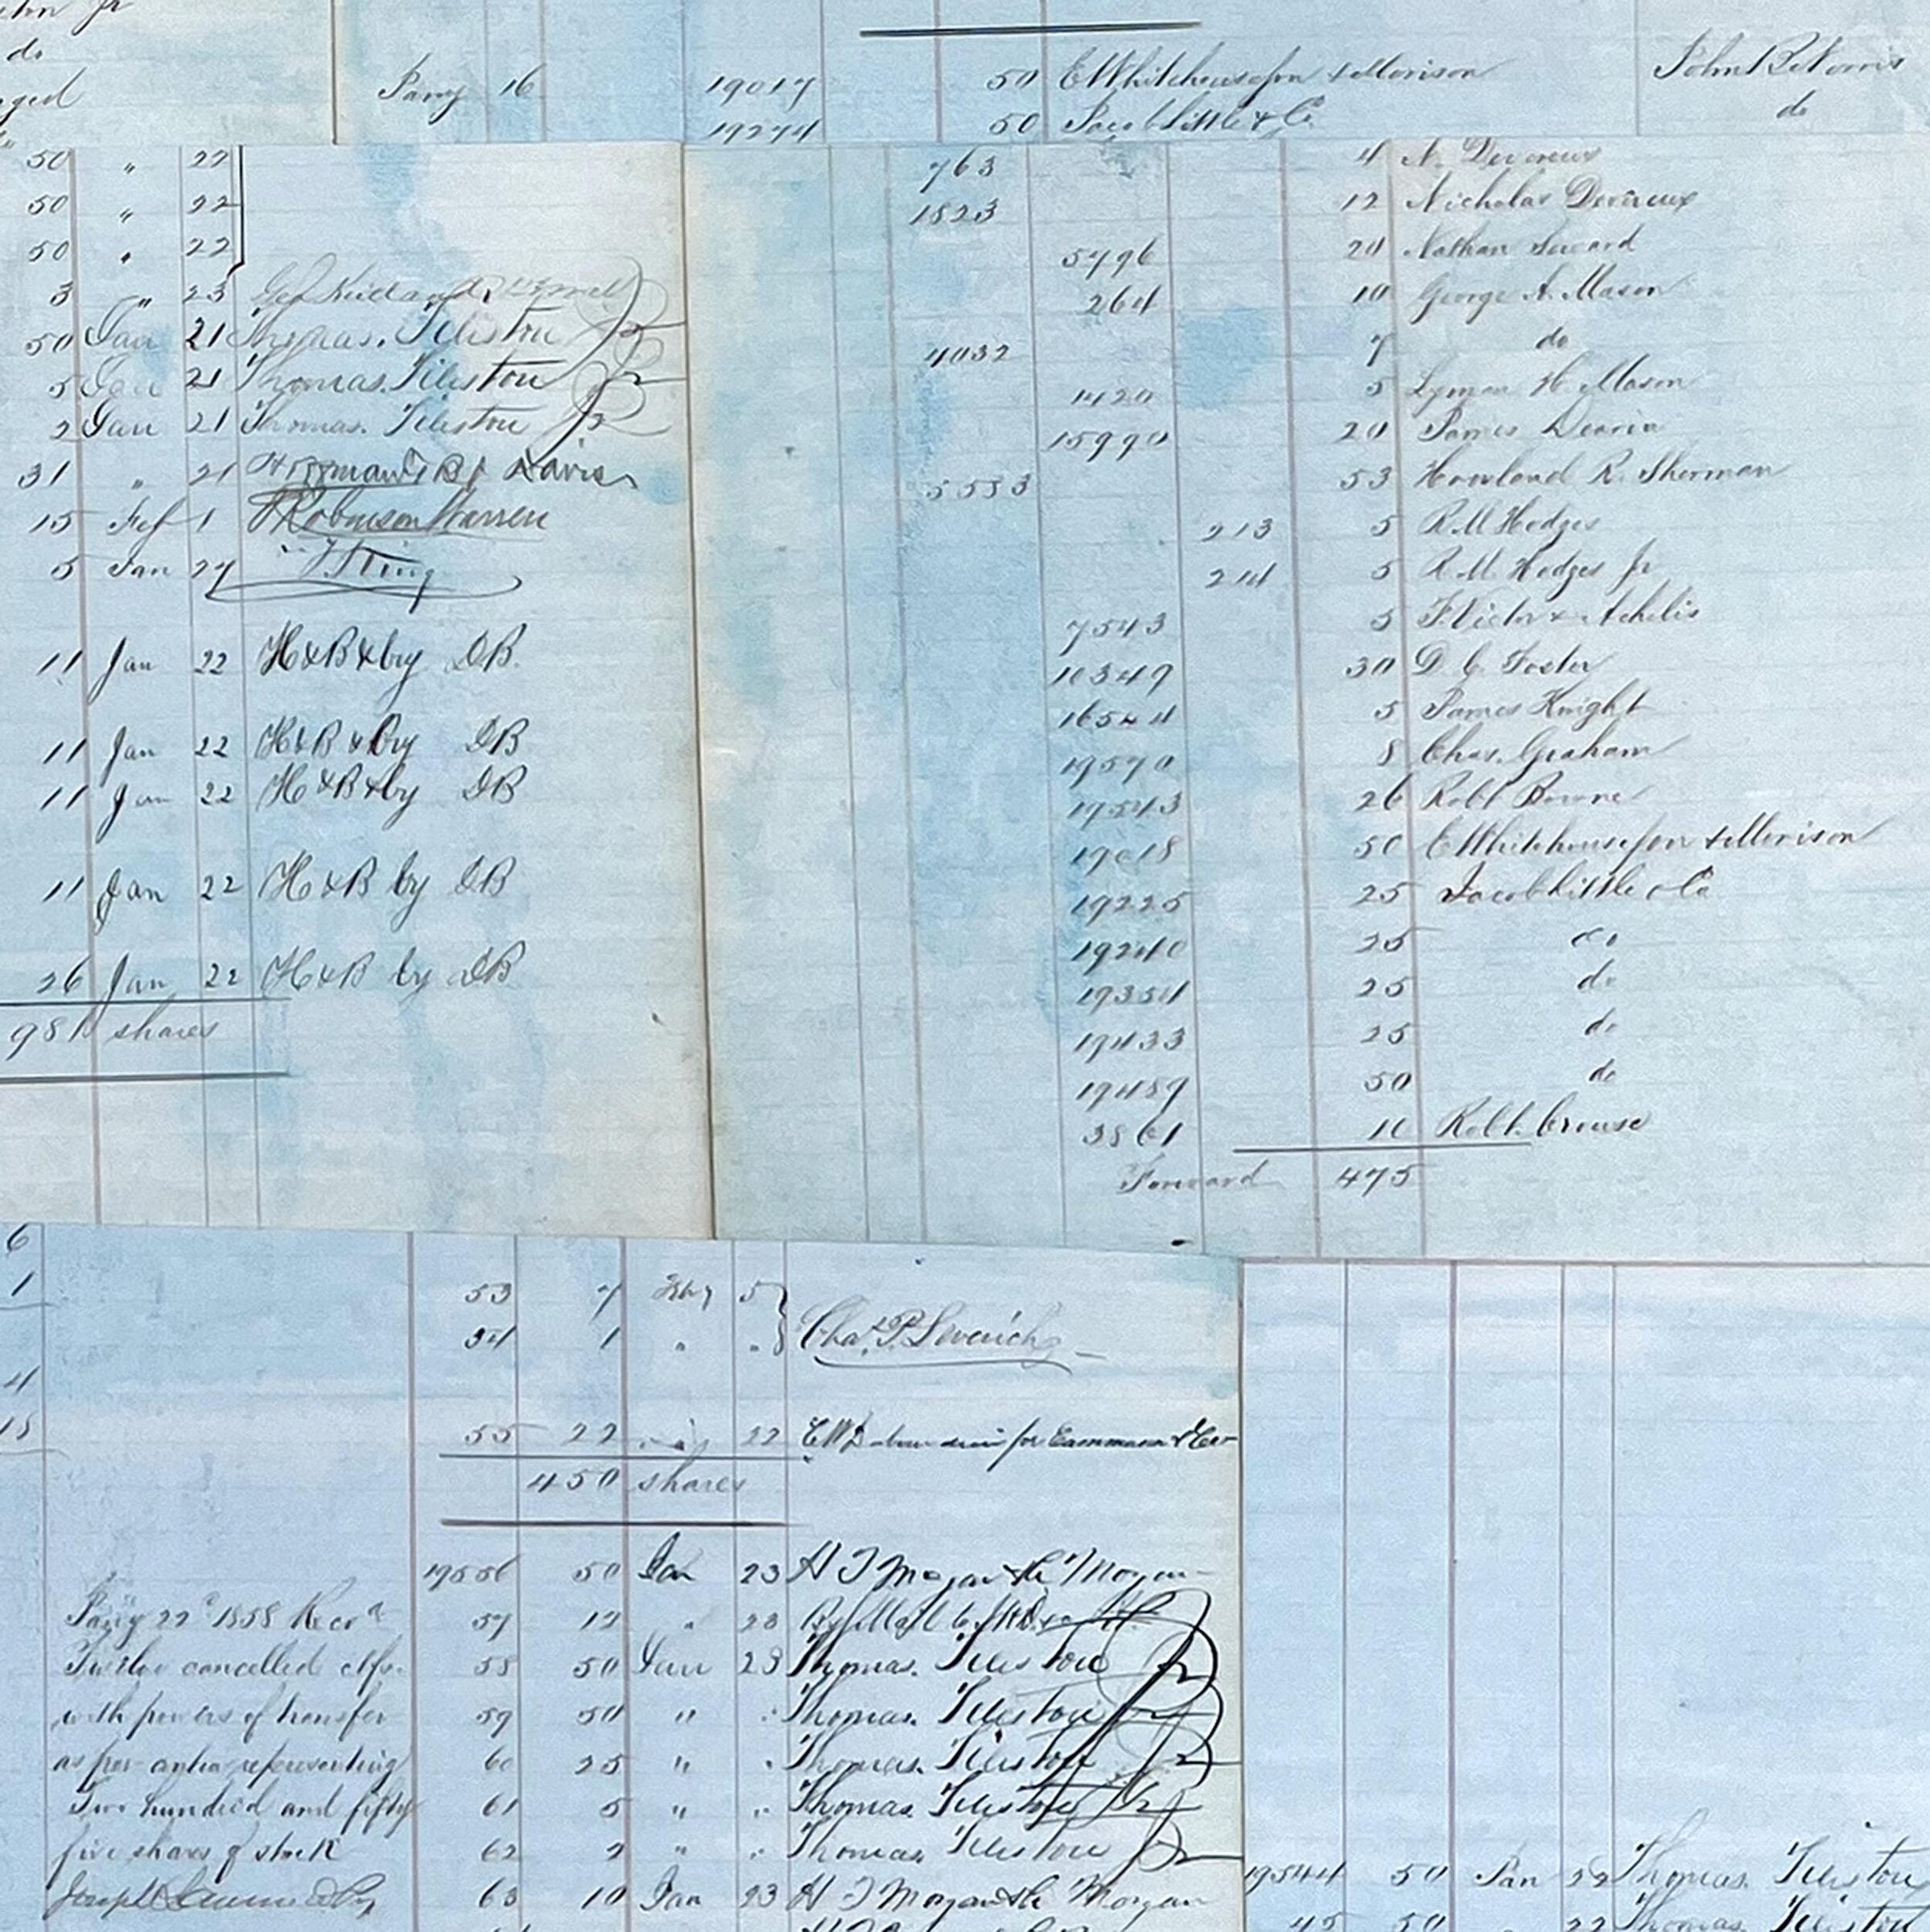 do
Jany 16 19017 50 E Whitehouse Son & Morison John B Norris
19274 50 Jacob Little & Co do
50 " 22
50 " 22
50 " 22
3 " 23
50 Jan 21 Thomas Tileston Jr
5 Jan 21 Thomas Tileston Jr
2 Jan 21 Thomas Tileston Jr
31 " 21 Davis
15 Feb 1 Robinson Warren
5 Jan 27 King
11 Jan 22 H & B & by DB
11 Jan 22 H & B & by DB
11 Jan 22 H & B & by DB
11 Jan 22 H & B by DB
26 Jan 22 H & B by DB
981 shares
763 4 N. Devereux
1823 12 Nicholas Devereux
5796 20 Nathan Seward
264 10 George A. Mason
4032 7 do
1420 5 Lyman H. Mason
15990 20 James Dearin
5583 53 Howland R. Sherman
213 5 R. M. Hodges
214 5 R. M. Hodges Jr
7543 5 F. Victor & Achelis
10349 30 D. C. Foster
16544 5 James Knight
19570 8 Chas. Graham
17543 26 Robt Bowne
19018 50 E Whitehouse Son & Morison
19225 25 Jacob Little & Co
19240 25 do
19354 25 do
19433 25 do
19489 50 do
3861 10 Robt. Crouse
Forward 475
6
1
4
15
53 7 Feby 5
54 1 " " Chas. P. Leverich
55 22 22 for Cammann & Co
450 shares
19556 50 Jan 23 H T Morgan Morgan
Jany 22d 1858 Recd 57 12 " 23
Twelve cancelled ctfs. 58 50 Jan 23 Thomas Tileston Jr
with powers of transfer 59 50 " " Thomas Tileston Jr
as per contra representing 60 25 " " Thomas Tileston Jr
Two hundred and fifty 61 5 " " Thomas Tileston Jr
five shares of stock 62 2 " " Thomas Tileston Jr
Joseph 63 10 Jan 23 H T Morgan Morgan
19544 50 Jan 22 Thomas Tileston
45 50 22 Thomas Tileston